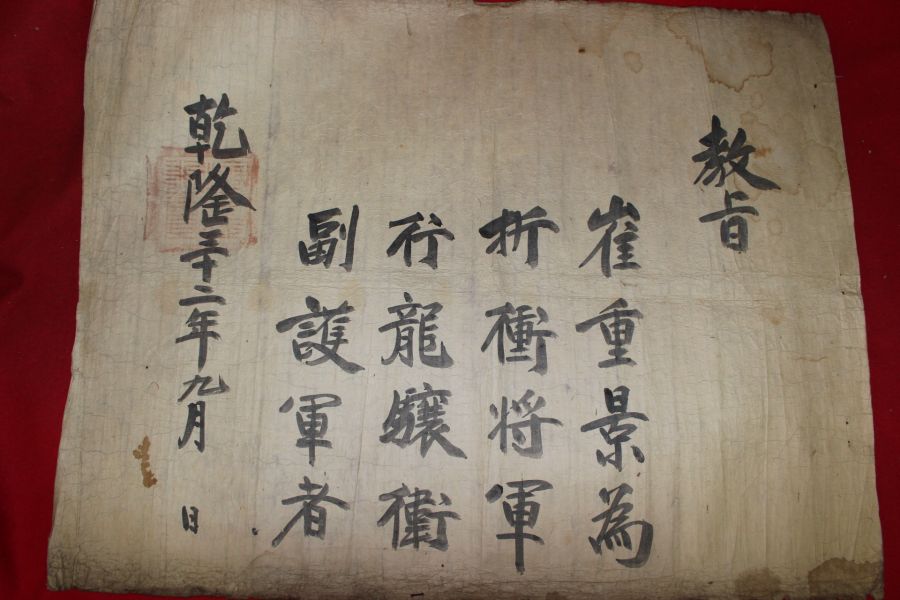 教旨
崔重景為
折衝将軍
行龍驤衛
副護軍者
乾隆三十二年九月 日